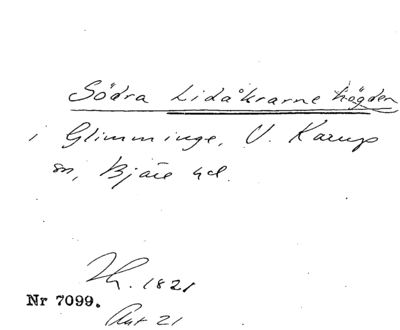 Södra Lidåkrarne högden
i Glimminge, V. Karup
sn, Bjäre hd.
Th. 1821
Nr 7099.
21